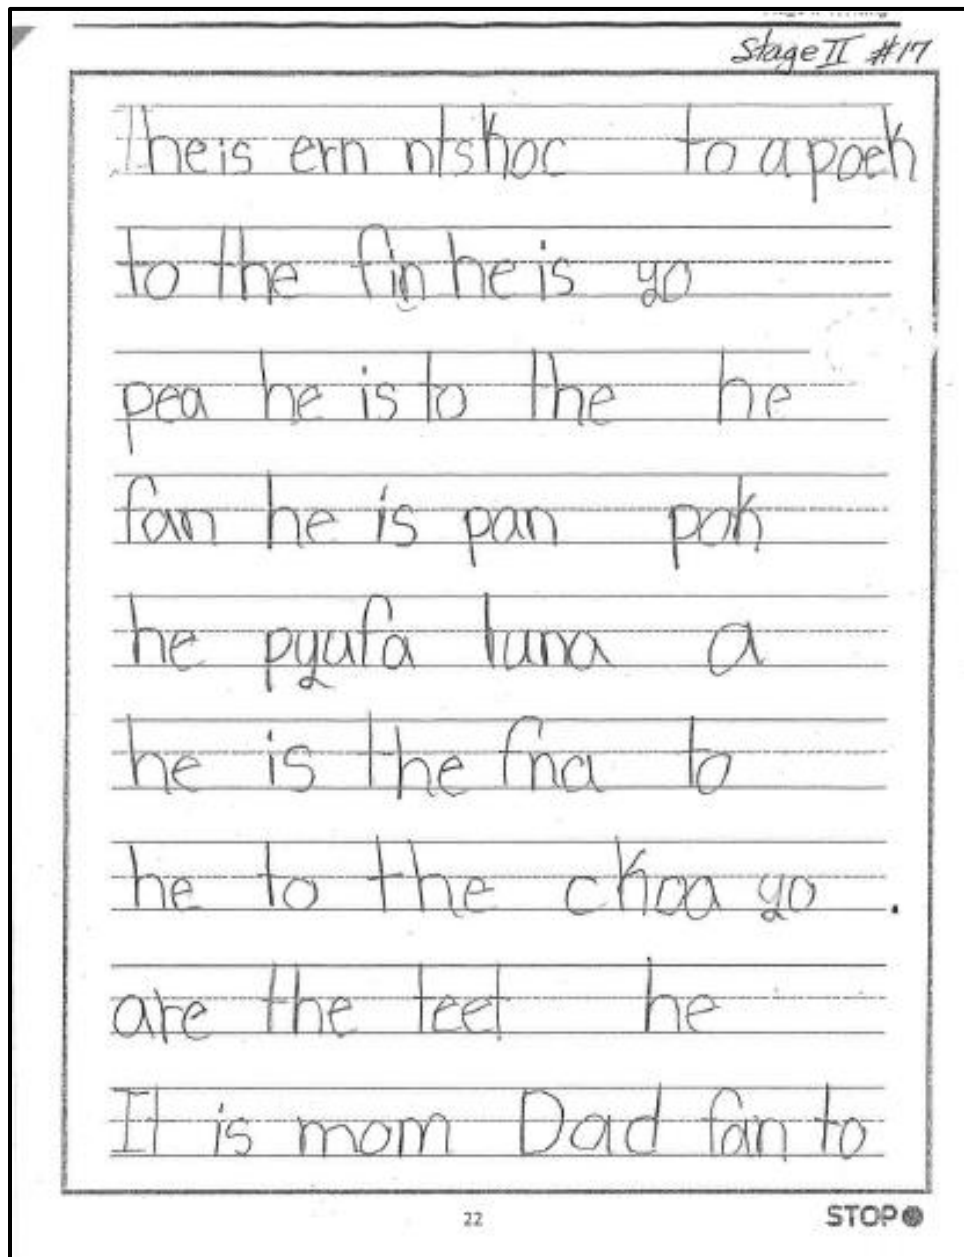 Stage II #17
he is ern ntshoc to a poeh
to the fin he is yo
pea he is to the he
fan he is pan poh
he pyufa tuna a
he is the fna to
he to the choa yo .
are the teet he
It is mom Dad fan to
22
STOP